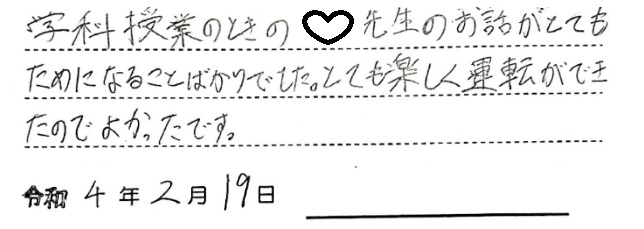 学科授業のときの♡先生のお話がとても
ためになることばかりでした。とても楽しく運転ができ
たのでよかったです。
令和4年2月19日